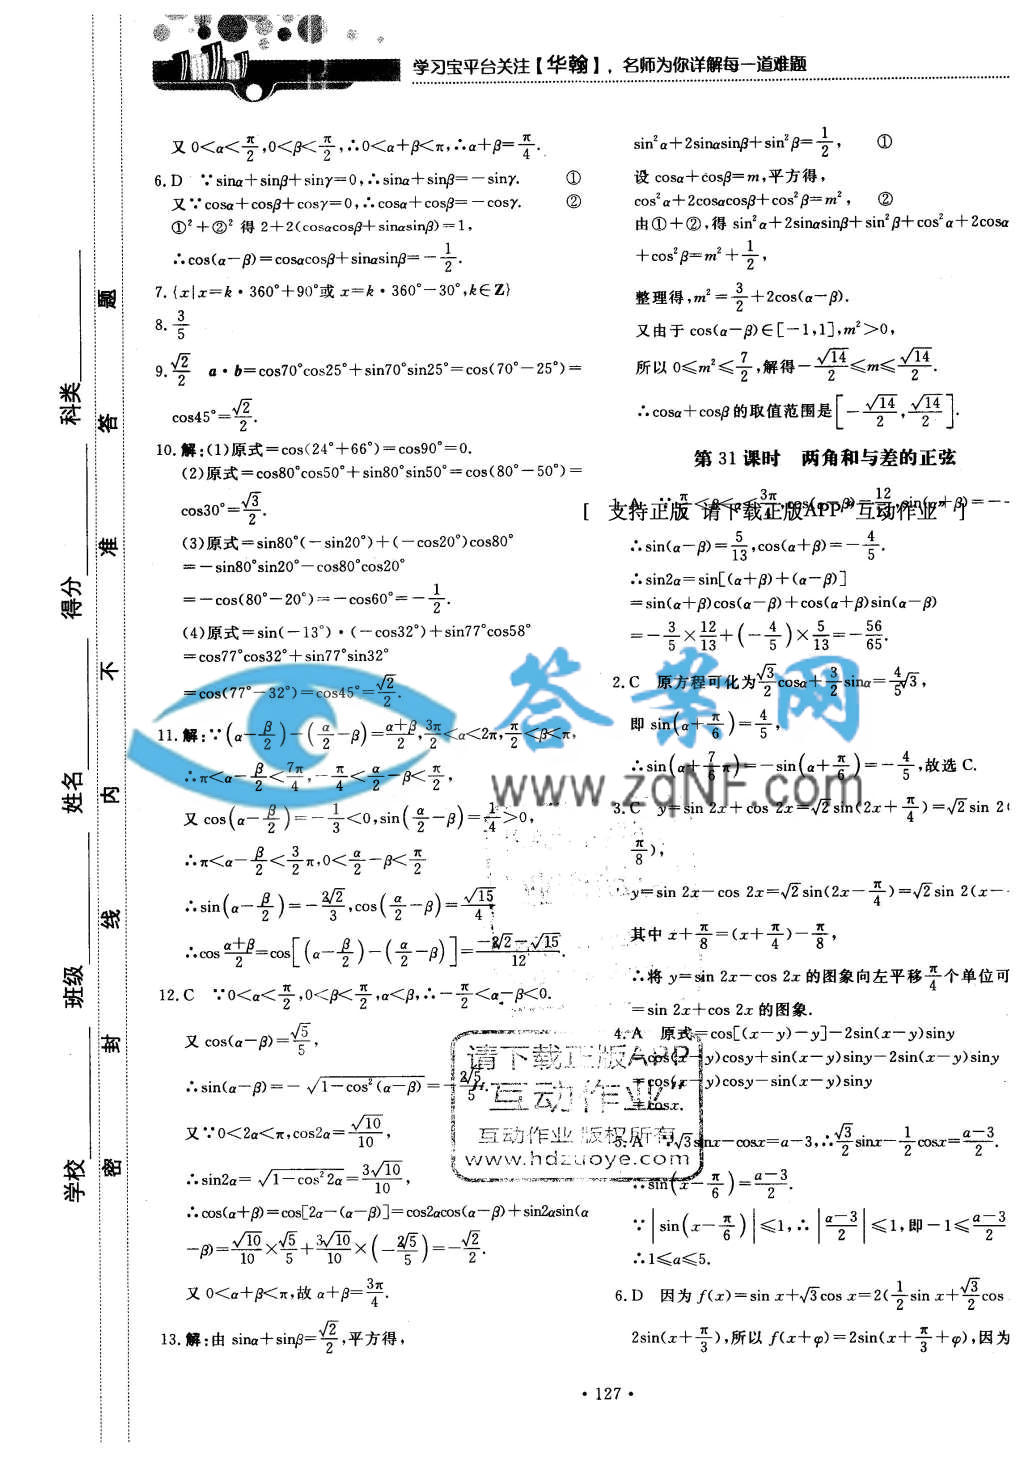 学习宝平台关注【华翰】，名师为你详解每一道难题
科类
得分
姓名
班级
学校
题
答
准
不
内
线
封
密
又 0<α<π/2,0<β<π/2,∴0<α+β<π,∴α+β=π/4.
6. D ∵sinα+sinβ+sinγ=0,∴sinα+sinβ=-sinγ. ①
又∵cosα+cosβ+cosγ=0,∴cosα+cosβ=-cosγ. ②
①²+②² 得 2+2(cosαcosβ+sinαsinβ)=1,
∴cos(α-β)=cosαcosβ+sinαsinβ=-1/2.
7. {x|x=k·360°+90°或 x=k·360°-30°,k∈Z}
8. 3/5
9. √2/2 a·b=cos70°cos25°+sin70°sin25°=cos(70°-25°)=
cos45°=√2/2.
10. 解:(1)原式=cos(24°+66°)=cos90°=0.
(2)原式=cos80°cos50°+sin80°sin50°=cos(80°-50°)=
cos30°=√3/2.
(3)原式=sin80°(-sin20°)+(-cos20°)cos80°
=-sin80°sin20°-cos80°cos20°
=-cos(80°-20°)=-cos60°=-1/2.
(4)原式=sin(-13°)·(-cos32°)+sin77°cos58°
=cos77°cos32°+sin77°sin32°
=cos(77°-32°)=cos45°=√2/2.
11. 解:∵(α-β/2)-(α/2-β)=(α+β)/2,3π/2<α<2π,π/2<β<π,
∴π<α-β/2<7π/4,-π/4<α/2-β<π/2,
又 cos(α-β/2)=-1/3<0,sin(α/2-β)=1/4>0,
∴π<α-β/2<3/2π,0<α/2-β<π/2
∴sin(α-β/2)=-2√2/3,cos(α/2-β)=√15/4
∴cos (α+β)/2=cos[(α-β/2)-(α/2-β)]=(-2√2-√15)/12.
12. C ∵0<α<π/2,0<β<π/2,α<β,∴-π/2<α-β<0.
又 cos(α-β)=√5/5,
∴sin(α-β)=-√(1-cos²(α-β))=-2√5/5.
又∵0<2α<π,cos2α=√10/10,
∴sin2α=√(1-cos²2α)=3√10/10,
∴cos(α+β)=cos[2α-(α-β)]=cos2αcos(α-β)+sin2αsin(α
-β)=√10/10×√5/5+3√10/10×(-2√5/5)=-√2/2.
又 0<α+β<π,故 α+β=3π/4.
13. 解:由 sinα+sinβ=√2/2,平方得,
sin²α+2sinαsinβ+sin²β=1/2, ①
设 cosα+cosβ=m,平方得,
cos²α+2cosαcosβ+cos²β=m², ②
由①+②,得 sin²α+2sinαsinβ+sin²β+cos²α+2cosα
+cos²β=m²+1/2,
整理得,m²=3/2+2cos(α-β).
又由于 cos(α-β)∈[-1,1],m²>0,
所以 0≤m²≤7/2,解得-√14/2≤m≤√14/2.
∴cosα+cosβ的取值范围是[-√14/2,√14/2].
第 31 课时 两角和与差的正弦
[ 支持正版 请下载正版APP“互动作业” ]
∴sin(α-β)=5/13,cos(α+β)=-4/5.
∴sin2α=sin[(α+β)+(α-β)]
=sin(α+β)cos(α-β)+cos(α+β)sin(α-β)
=-3/5×12/13+(-4/5)×5/13=-56/65.
2. C 原方程可化为√3/2cosα+3/2sinα=4/5√3,
即 sin(α+π/6)=4/5,
∴sin(α+7/6π)=-sin(α+π/6)=-4/5,故选 C.
3. C y=sin 2x+cos 2x=√2sin(2x+π/4)=√2sin 2(
π/8),
y=sin 2x-cos 2x=√2sin(2x-π/4)=√2sin 2(x-
其中 x+π/8=(x+π/4)-π/8,
∴将 y=sin 2x-cos 2x 的图象向左平移π/4个单位可
=sin 2x+cos 2x 的图象.
4. A 原式=cos[(x-y)-y]-2sin(x-y)siny
=cos(x-y)cosy+sin(x-y)siny-2sin(x-y)siny
=cos(x-y)cosy-sin(x-y)siny
=cosx.
5. A ∵√3sinx-cosx=a-3,∴√3/2sinx-1/2cosx=(a-3)/2.
∴sin(x-π/6)=(a-3)/2.
∵|sin(x-π/6)|≤1,∴|(a-3)/2|≤1,即-1≤(a-3)/2
∴1≤a≤5.
6. D 因为 f(x)=sin x+√3cos x=2(1/2sin x+√3/2cos
2sin(x+π/3),所以 f(x+φ)=2sin(x+π/3+φ),因为
答案网
www.zqNF.com
请下载正版APP
互动作业
互动作业 版权所有
www.hdzuoye.com
·127·